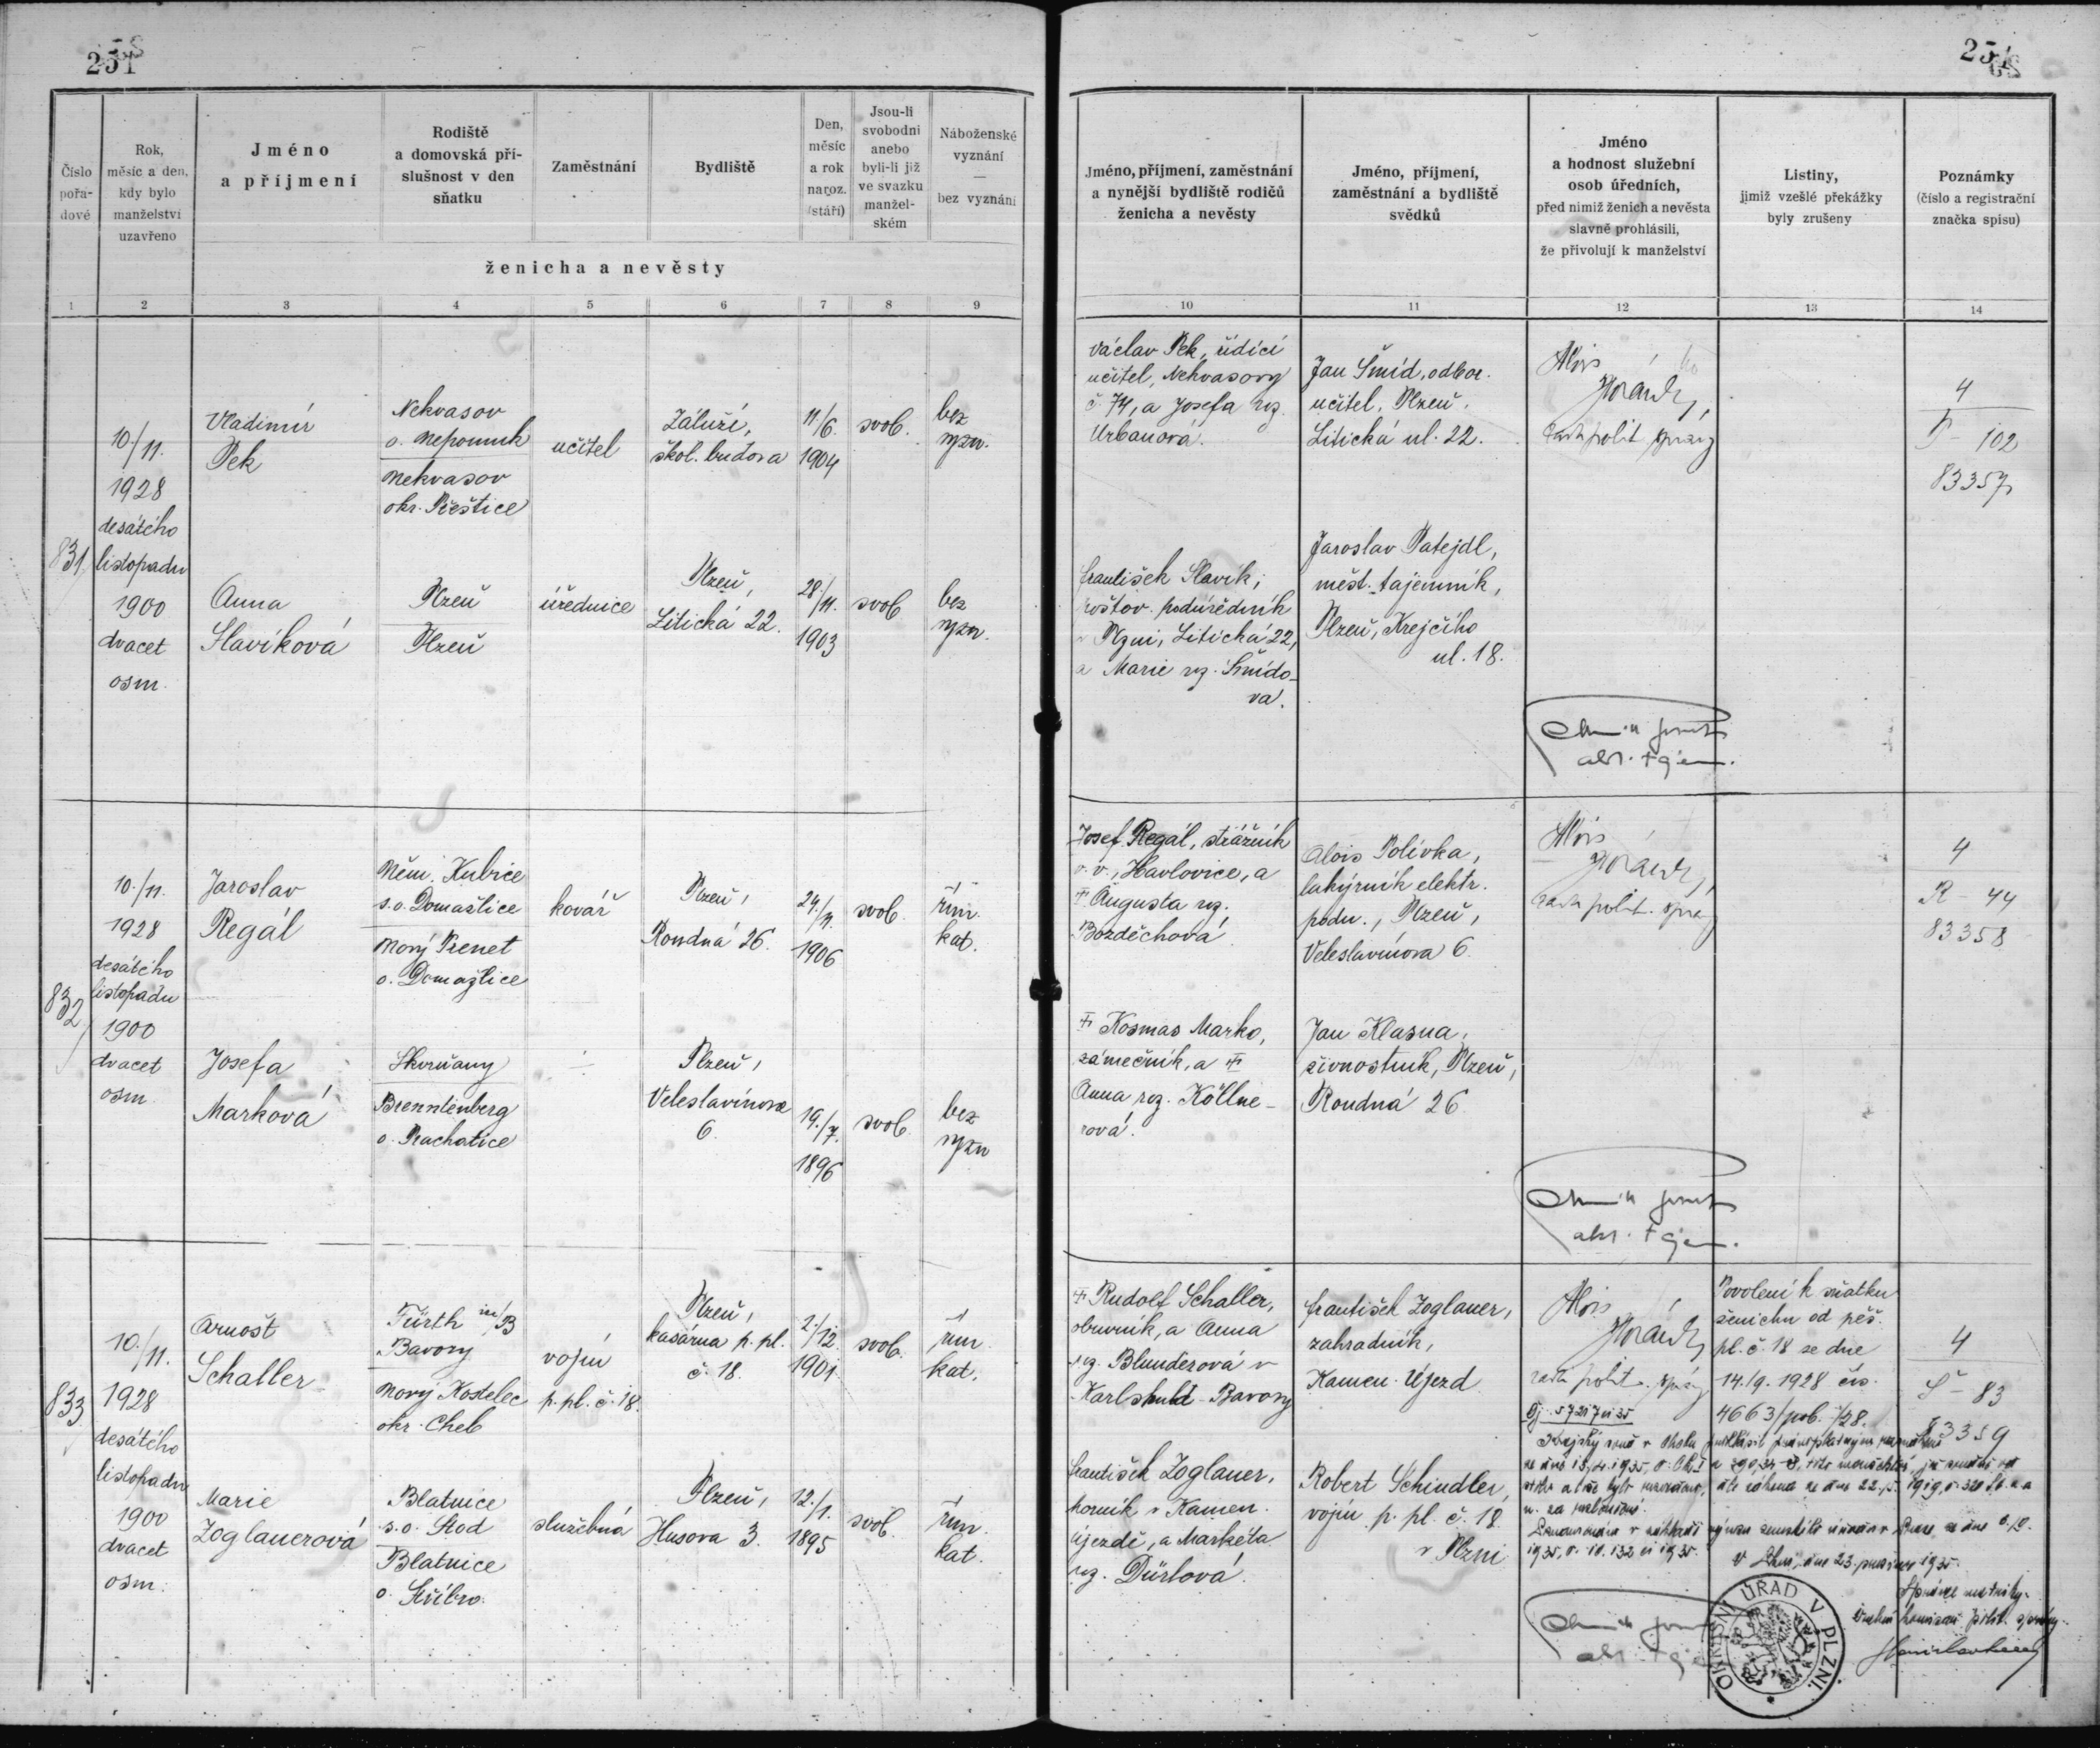 251
Číslo
pořa-
dové
Rok,
měsíc a den,
kdy bylo
manželství
uzavřeno
Jméno
a příjmení
Rodiště
a domovská pří-
slušnost v den
sňatku
Zaměstnání
Bydliště
Den,
měsíc
a rok
naroz.
(stáří)
Jsou-li
svobodni
anebo
byli-li již
ve svazku
manžel-
ském
Náboženské
vyznání
—
bez vyznání
ženicha a nevěsty
1 2 3 4 5 6 7 8 9
831
10./11.
1928
desátého
listopadu
1900
dvacet
osm
Vladimír
Pek
Nekvasov
o. Nepomuk
Nekvasov
okr. Přeštice
učitel
Záluží,
škol. budova
11/6.
1904
svob.
bez
vyzn.
Anna
Slavíková
Plzeň
Plzeň
úřednice
Plzeň,
Litická 22.
28./11.
1903
svob
bez
vyzn.
832
10./11.
1928
desátého
listopadu
1900
dvacet
osm
Jaroslav
Regál
Něm. Kubice
s.o. Domažlice
Nový Pienet
o. Domažlice
kovář
Plzeň,
Roudná 26.
24./11.
1906
svob.
řím.
kat.
Josefa
Marková
Skvrňany
Brenntenberg
o. Prachatice
Plzeň,
Veleslavínova
6.
19./7.
1896
svob.
bez
vyzn
833
10./11.
1928
desátého
listopadu
1900
dvacet
osm.
Arnošt
Schaller
Fürth in/B
Bavory
Nový Kostelec
okr. Cheb
vojín
p. pl. č. 18.
Plzeň,
kasárna p. pl.
č. 18.
2./12.
1901
svob.
řím.
kat.
Marie
Zoglauerová
Blatnice
s.o. Stod
Blatnice
o. Stříbro.
služebná
Plzeň,
Husova 3.
12./1.
1895
svob.
řím.
kat.
251
Jméno, příjmení, zaměstnání
a nynější bydliště rodičů
ženicha a nevěsty
Jméno, příjmení,
zaměstnání a bydliště
svědků
Jméno
a hodnost služební
osob úředních,
před nimiž ženich a nevěsta
slavně prohlásili,
že přivolují k manželství
Listiny,
jimiž vzešlé překážky
byly zrušeny
Poznámky
(číslo a registrační
značka spisu)
10 11 12 13 14
Václav Pek, řídící
učitel, Nekvasovy
č. 74, a Josefa roz.
Urbanová.
Jan Šmíd, odbor.
učitel, Plzeň,
Litická ul. 22.
Alois
rada polit. správy
4
P - 102
83357
František Slavík,
poštov. podúředník
v Plzni, Litická 22,
a Marie roz. Šmído-
vá.
Jaroslav Patejdl,
měst. tajemník,
Plzeň, Krejčího
ul. 18.
Josef Regál, strážník
v. v., Havlovice, a
Augusta roz.
Bozděchová.
Alois Polívka,
lakýrník elektr.
podn., Plzeň,
Veleslavínova 6.
Alois
rada polit. správy
4
R - 44
83358
Kosmas Marko,
zámečník, a
Anna roz. Köllne-
rová.
Jan Klasna,
živnostník, Plzeň,
Roudná 26
Rudolf Schaller,
obuvník, a Anna
roz. Blunderová v
Karlshuld - Bavory
František Zoglauer,
zahradník,
Kamen. Újezd
Alois
rada polit. správy
Povolení k sňatku
ženichu od pěš.
pl. č. 18 ze dne
14./9. 1928 čís.
4663/pob. /28.
4
Š - 83
83359
František Zoglauer,
horník v Kamen.
Újezdě, a Markéta
roz. Dürlová.
Robert Schindler,
vojín p. pl. č. 18
v Plzni
OKRESNÍ ÚŘAD V PLZNI